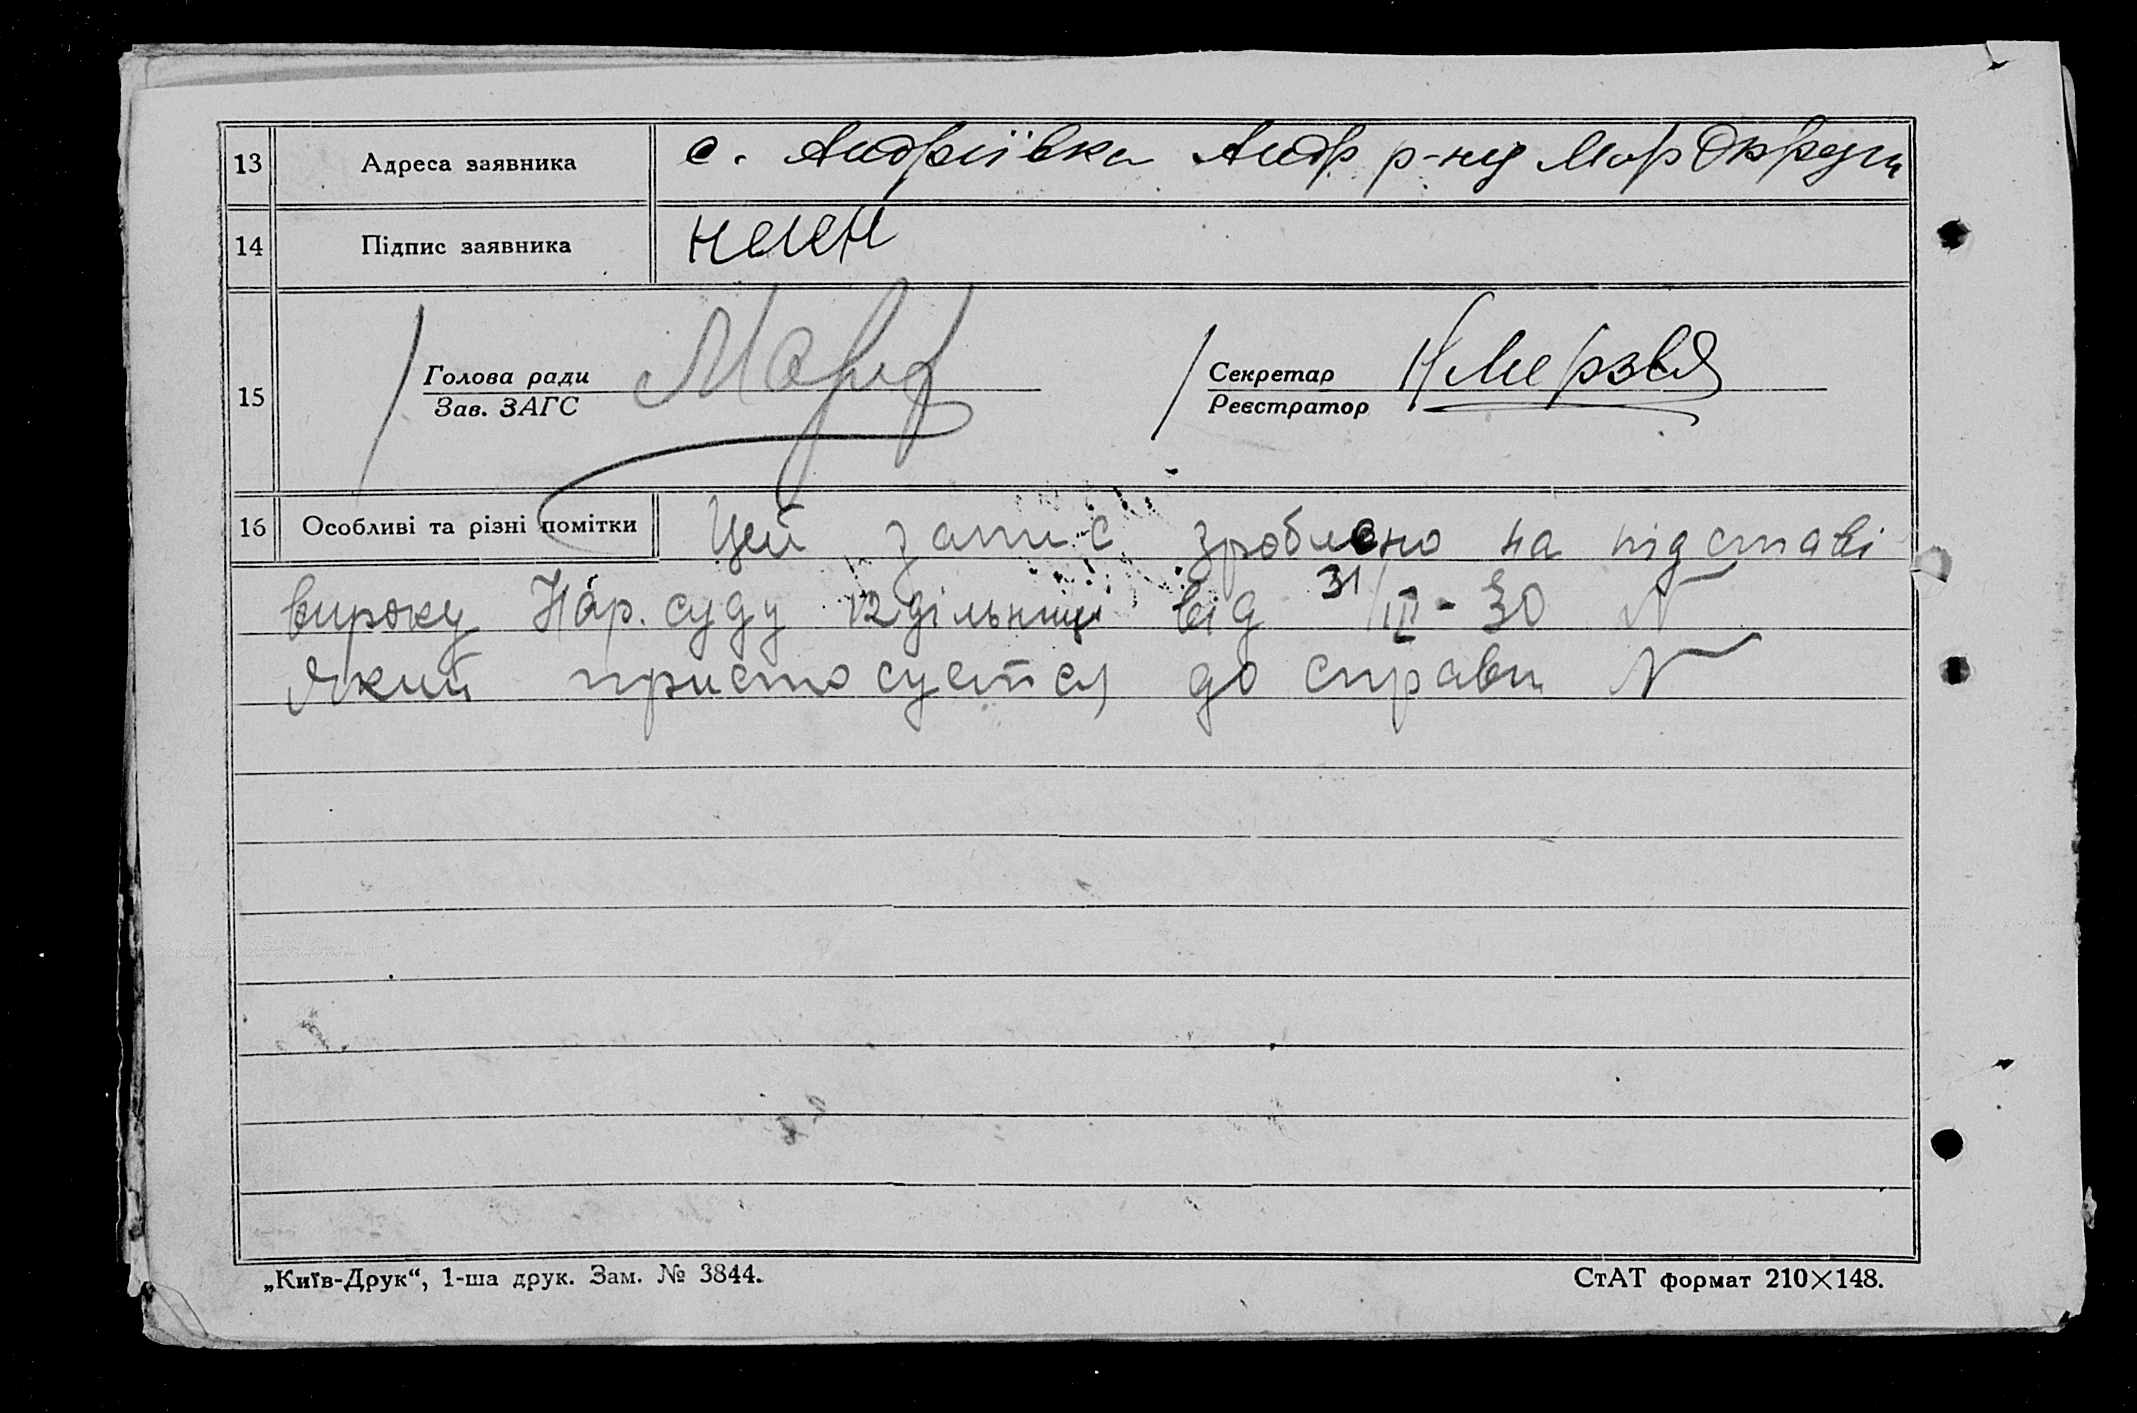 13 Адреса заявника с. Андріївка Андр р-ну Мар Округи
14 Підпис заявника непис
15 Голова ради
Зав. ЗАГС
Секретар
Реєстратор
16 Особливі та різні помітки Цей запис зроблено на підставі
вироку Нар. суду 12 дільниці від 31/III-30 N
який пристосуется до справи N
„Київ-Друк“, 1-ша друк. Зам. № 3844.
СтАТ формат 210×148.